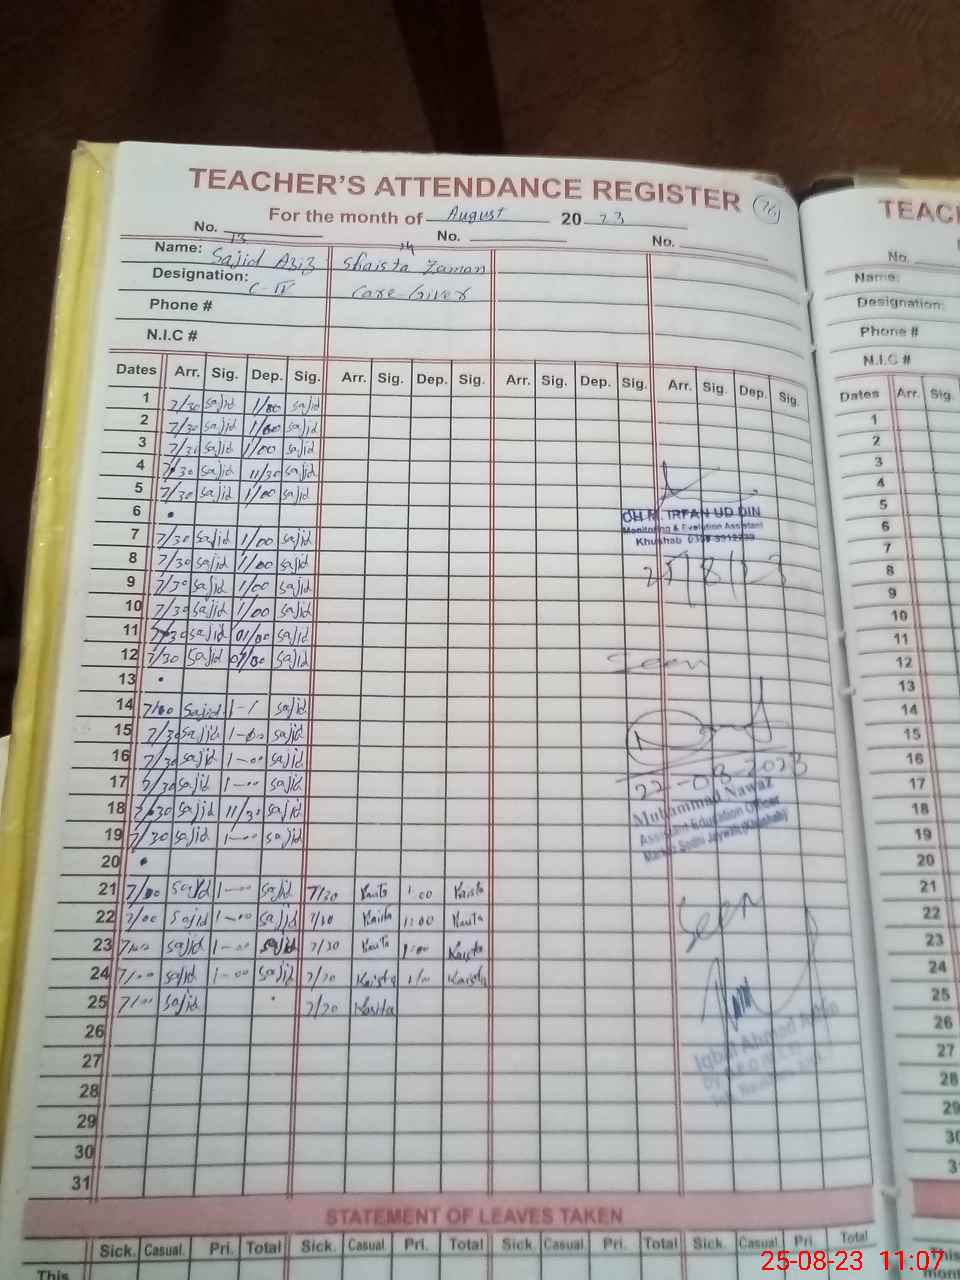 TEACHER'S ATTENDANCE REGISTER
For the month of August 20 23
No. 13 No. 14 No.
Name: Sajid Aziz Shaista Zaman
Designation: C-IV Care Giver
Phone #
N.I.C #
Dates Arr. Sig. Dep. Sig. Arr. Sig. Dep. Sig. Arr. Sig. Dep. Sig. Arr. Sig. Dep. Sig.
1 7/30 sajid 1/00 sajid
2 7/30 sajid 1/00 sajid
3 7/30 sajid 1/00 sajid
4 7/30 sajid 11/30 sajid
5 7/30 sajid 1/00 sajid
6 •
CH M. IRFAN UD DIN
Monitoring & Evalution Assistant
Khushab
7 7/30 sajid 1/00 sajid
8 7/30 sajid 1/00 sajid
25/8/23
9 7/30 sajid 1/00 sajid
10 7/30 sajid 1/00 sajid
11 7/30 sajid 01/00 sajid
12 7/30 sajid sajid
Seen
13 •
14 7/00 sajid sajid
15 7/30 sajid 1-00 sajid
16 7/30 sajid 1-00 sajid
22-08-2023
17 7/30 sajid 1-00 sajid
Muhammad Nawaz
Assistant Education Officer
18 7/30 sajid 11/30 sajid
19 7/30 sajid 1-00 sajid
20 •
21 7/00 sajid 1-00 sajid 7/30 1:00
Seen
22 7/00 sajid 1-00 sajid 7/30 1:00
23 7/00 sajid 1-00 sajid 7/30 1:00
24 7/00 sajid 1-00 sajid 7/30
25 7/00 sajid 7/30
Iqbal Ahmad
26
27
28
29
30
31
STATEMENT OF LEAVES TAKEN
Sick. Casual. Pri. Total Sick. Casual. Pri. Total Sick. Casual. Pri. Total Sick. Casual. Pri. Total
This
TEAC
No.
Name:
Designation:
Phone #
N.I.C #
Dates Arr. Sig.
1
2
3
4
5
6
7
8
9
10
11
12
13
14
15
16
17
18
19
20
21
22
23
24
25
26
27
28
29
30
3
This
mon
25-08-23 11:07